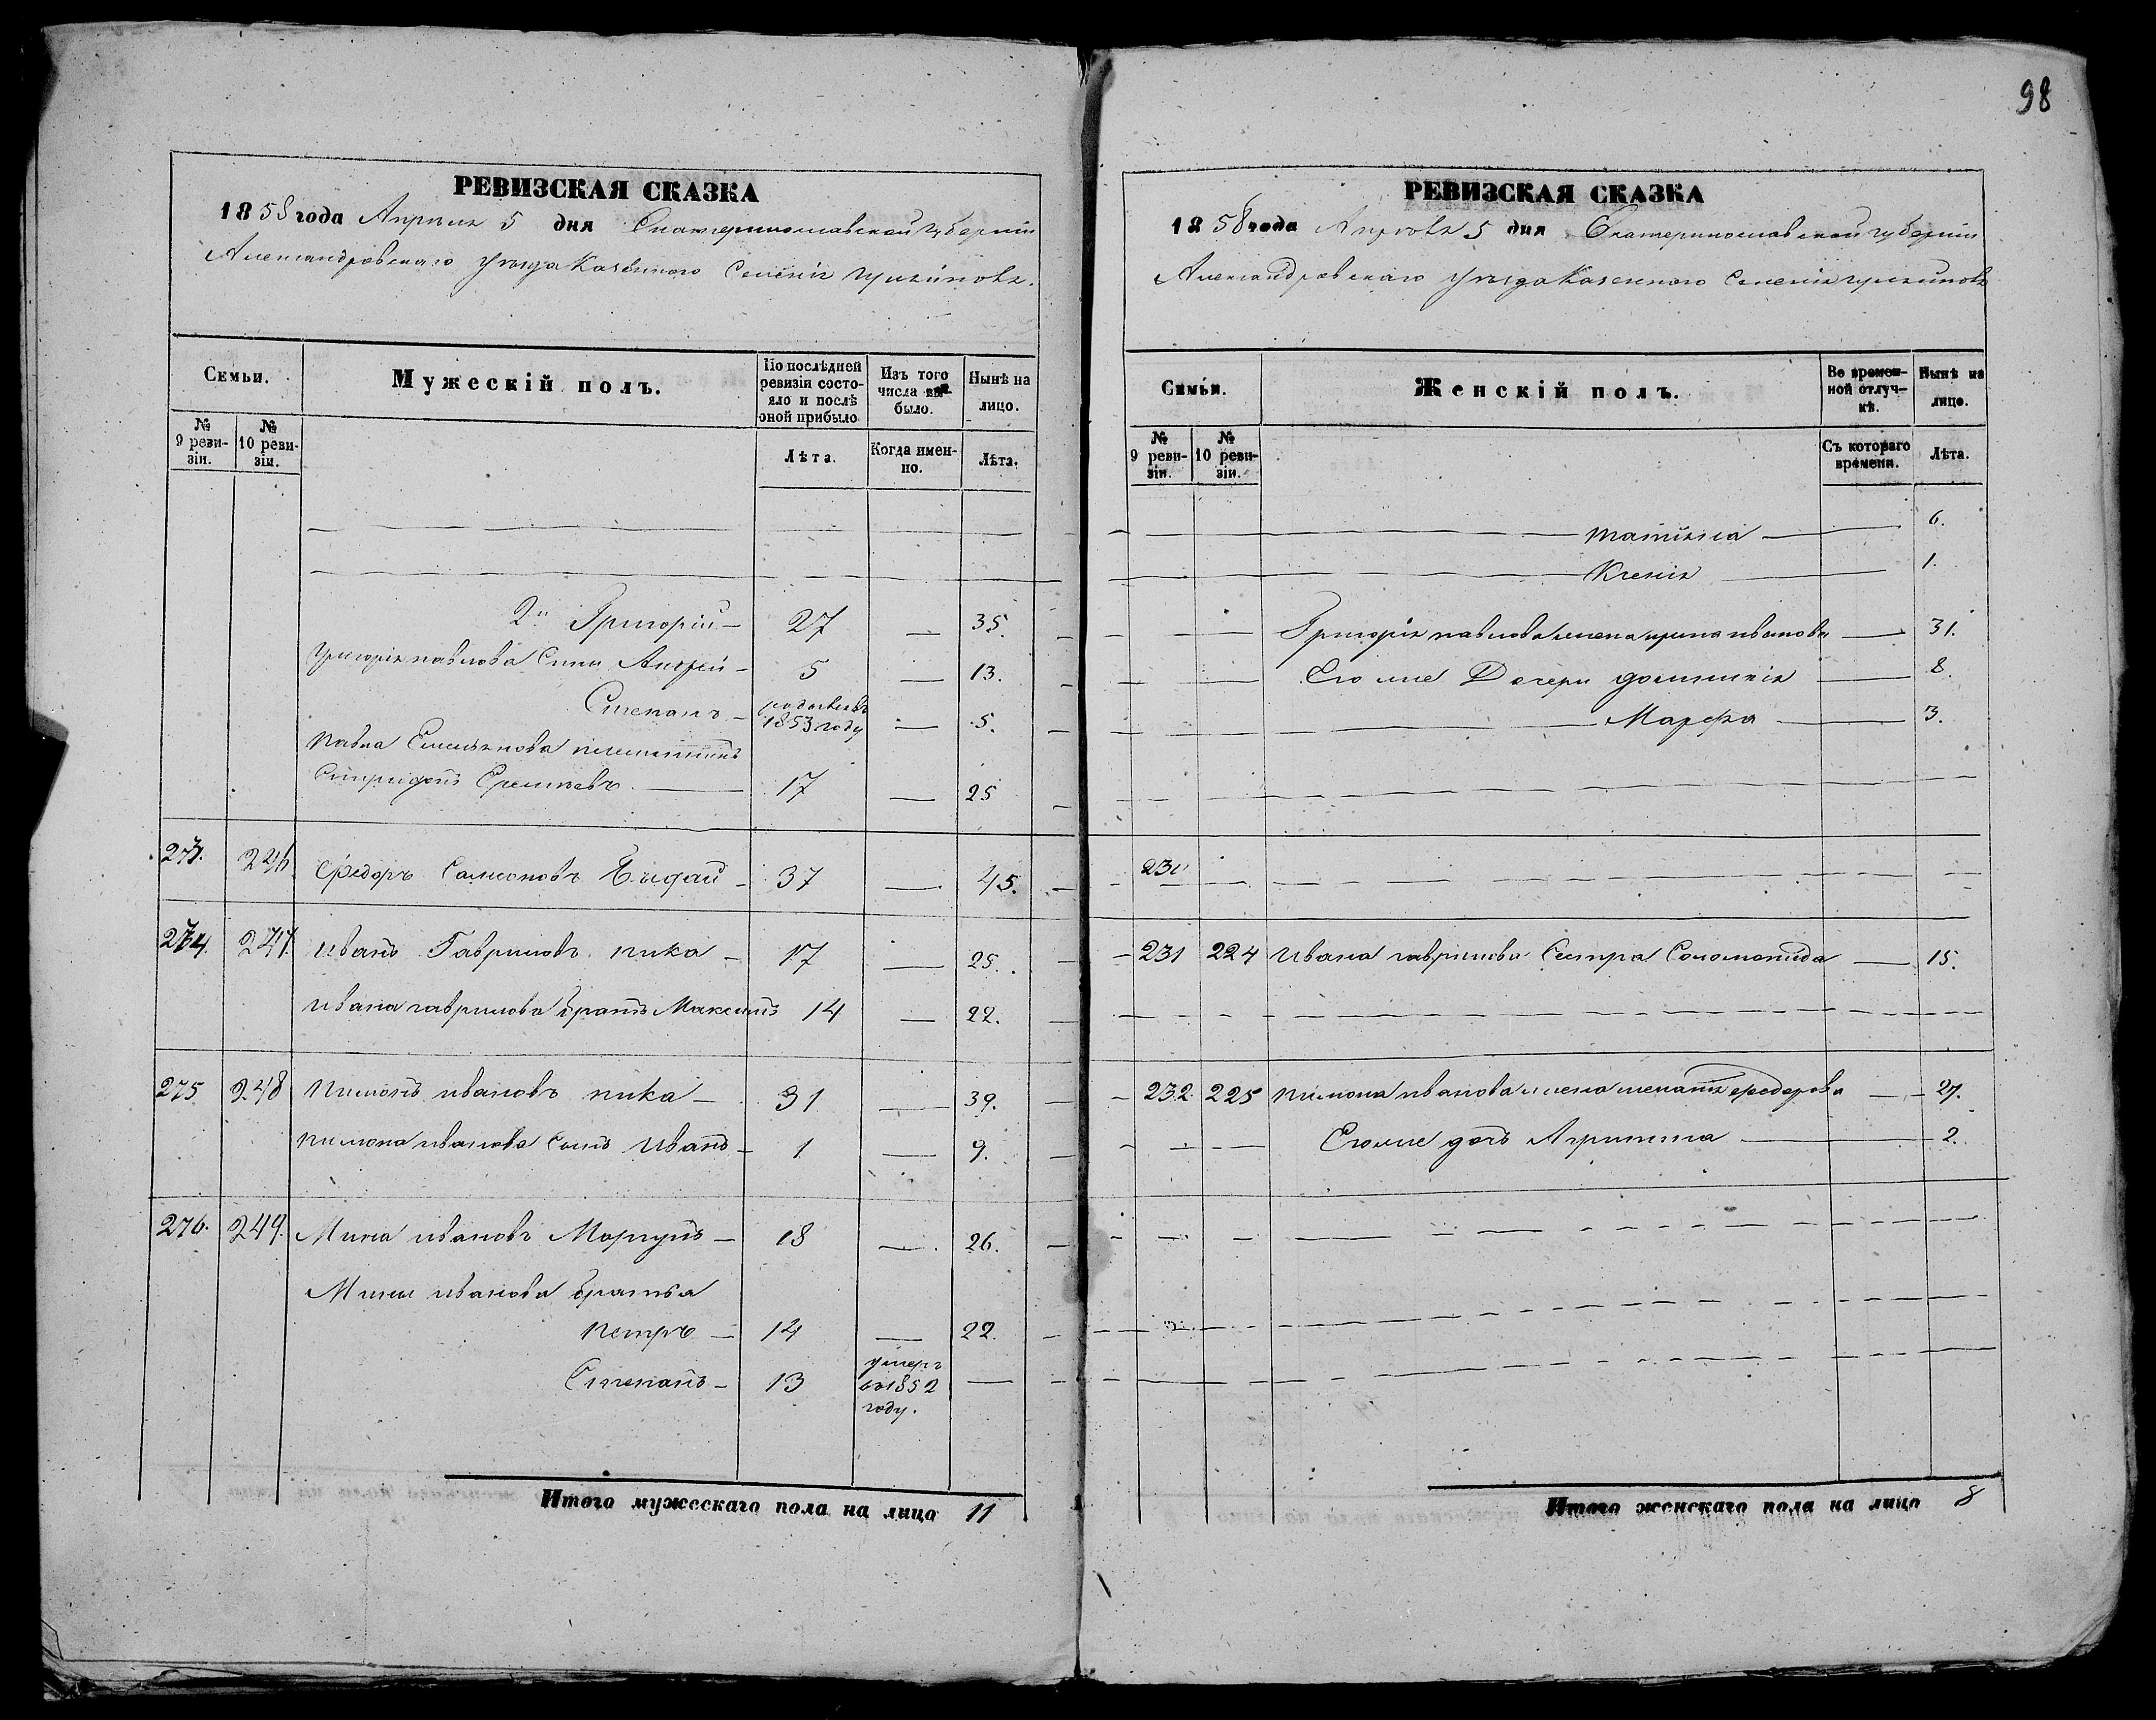 98
РЕВИЗСКАЯ СКАЗКА
1858 года Апрѣля 5 дня Екатеринославской губерніи
Александровскаго уѣзда Казенного Селенія
Семьи.
Мужескій полъ.
По послѣдней ревизіи состояло и послѣ оной прибыло
Изъ того числа выбыло.
Нынѣ на лицо.
№ 9 ревизіи.
№ 10 ревизіи.
Лѣта.
Когда именно.
Лѣта.
2й Григорій 27 — 35.
Григорія павлова Сынъ Андрей 5 — 13.
Степанъ родился въ 1853 году — 5.
Павла Емельянова племянникъ
Спиридонъ 17 — 25
273. 246 Федоръ Самсоновъ 37 — 45.
274. 247. Иванъ Гавриловъ пика 17 — 25.
Ивана гаврилова братъ Максимъ 14 — 22.
275 248 Пимонъ ивановъ пика 31 — 39.
пимона иванова Сынъ Иванъ 1 — 9.
276. 249. Мина ивановъ Моргунъ 18 — 26.
Мины иванова братья
петръ 14 — 22.
Степанъ 13 умеръ въ 1852 году. —
Итого мужескаго пола на лицо 11
РЕВИЗСКАЯ СКАЗКА
1858 года Апрѣля 5 дня Екатеринославской губерніи
Александровскаго уѣзда Казенного Селенія
Семьи.
Женскій полъ.
Во временной отлучкѣ.
Нынѣ на лицо.
№ 9 ревизіи.
№ 10 ревизіи.
Съ котораго времени.
Лѣта.
6.
Ксенія 1.
Григорія павлова жена ирина иванова — 31.
Его же Дочери — 8.
Марфа — 3.
230
231 224 Ивана гаврилова Сестра Соломонида — 15.
232 225 пимона иванова жена федорова — 27.
Его же дочь Агрипина — 2.
Итого женскаго пола на лицо 8